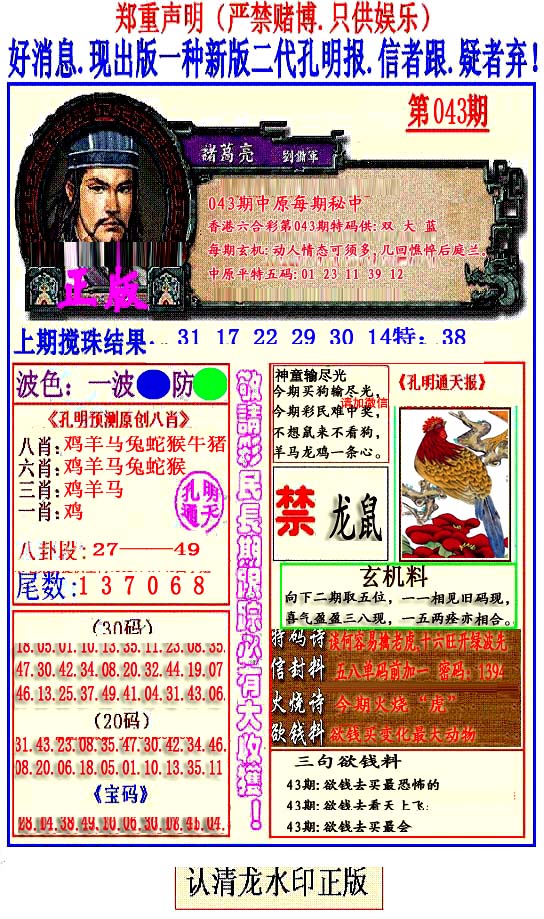 郑重声明（严禁赌博.只供娱乐）
好消息.现出版一种新版二代孔明报.信者跟.疑者弃!
第043期
諸葛亮 劉備軍
043期中原每期秘中
香港六合彩第043期特码供: 双 大 蓝
每期玄机: 动人情态可须多, 几回憔悴后庭兰。
中原平特五码: 01 23 11 39 12
正版
上期搅珠结果: 31 17 22 29 30 14特: 38
波色: 一波 防
《孔明预测原创八肖》
八肖: 鸡羊马兔蛇猴牛猪
六肖: 鸡羊马兔蛇猴
三肖: 鸡羊马
一肖: 鸡
孔明通天
八卦段: 27——49
尾数: 1 3 7 0 6 8
(30码)
18.05.01.10.13.35.11.23.08.35.
47.30.42.34.08.20.32.44.19.07
46.13.25.37.49.41.04.31.43.06.
(20码)
31.43.23.08.35.47.30.42.34.46.
08.20.06.18.05.01.10.13.35.11
《宝码》
敬請彩民長期跟踪必有大收獲！
神童输尽光
今期买狗输尽光,
请加微信
今期彩民难中奖,
不想鼠来不看狗,
羊马龙鸡一条心。
《孔明通天报》
禁 龙鼠
玄机料
向下二期取五位, 一一相见旧码现,
喜气盈盈三八现, 一五两痊亦相合。
特码诗 谈何容易擒老虎,十六旺开绿波先
信封料 五八单码前加一 密码: 1394
火烧诗 今期火烧“虎”
欲钱料 欲钱买变化最大动物
三句欲钱料
43期: 欲钱去买最恐怖的
43期: 欲钱去看天上飞:
43期: 欲钱去买最会
认清龙水印正版